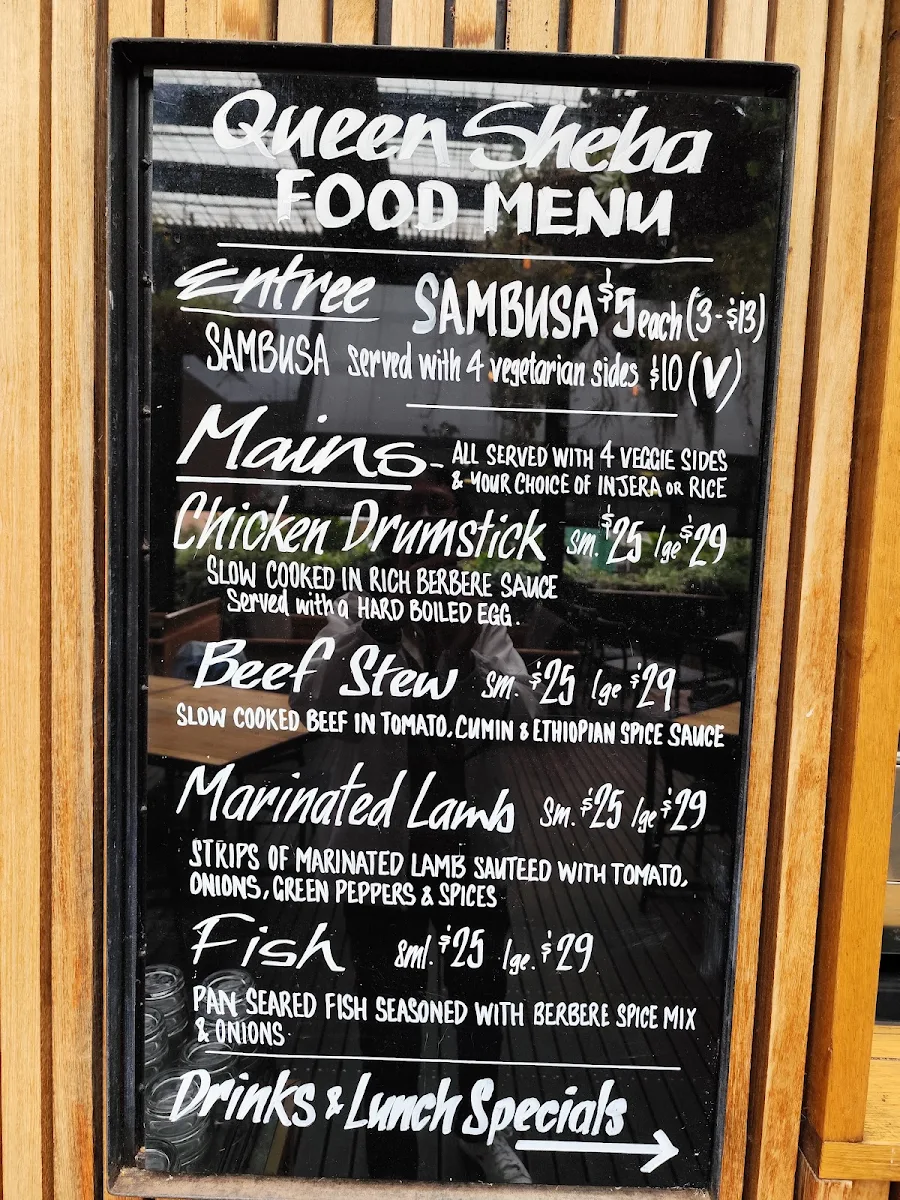 Queen Sheba
FOOD MENU
Entree SAMBUSA $5 each (3-$13)
SAMBUSA Served with 4 vegetarian sides $10 (V)
Mains - ALL SERVED WITH 4 VEGGIE SIDES
& YOUR CHOICE OF INJERA OR RICE
Chicken Drumstick sm. $25 lge $29
SLOW COOKED IN RICH BERBERE SAUCE
Served with a HARD BOILED EGG.
Beef Stew sm. $25 lge $29
SLOW COOKED BEEF IN TOMATO, CUMIN & ETHIOPIAN SPICE SAUCE
Marinated Lamb Sm. $25 lge $29
STRIPS OF MARINATED LAMB SAUTEED WITH TOMATO,
ONIONS, GREEN PEPPERS & SPICES
Fish sml. $25 lge. $29
PAN SEARED FISH SEASONED WITH BERBERE SPICE MIX
& ONIONS
Drinks & Lunch Specials